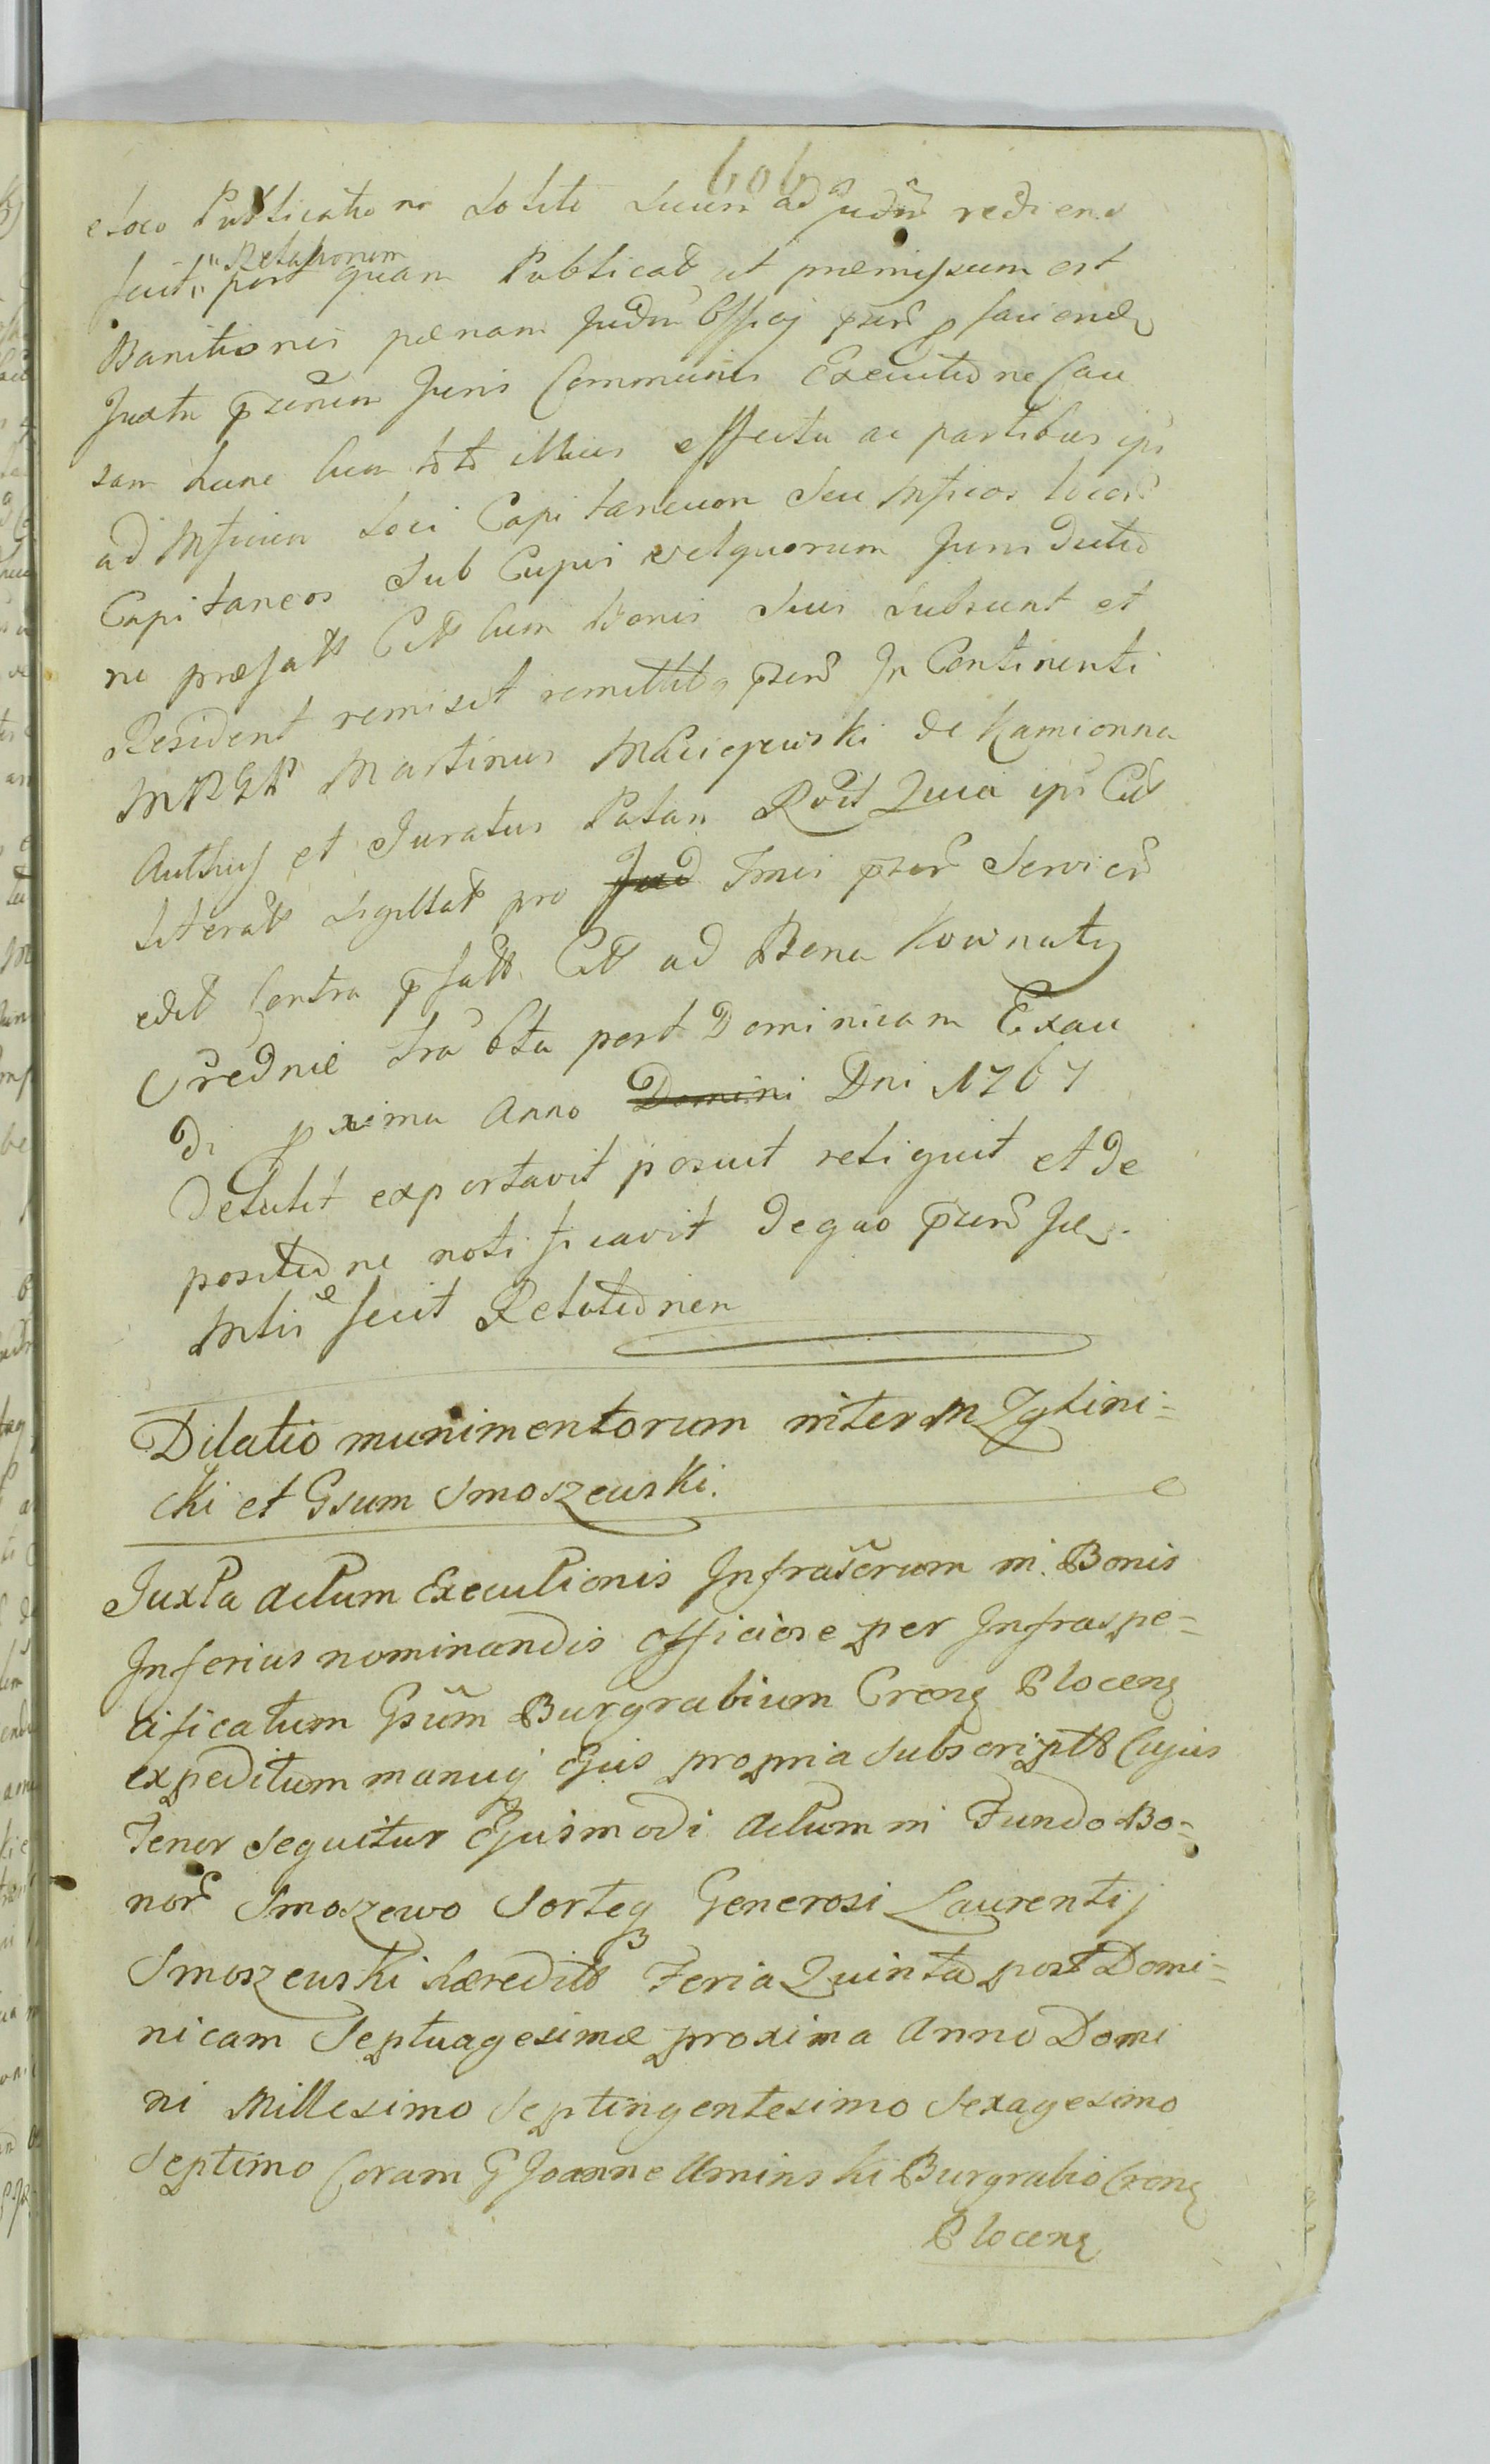 606
e loco Publicationis solito suum ad Judm rediens
fecit "Relationem" post quam Publicat ut præmissum est
Banitionis pœnam Judm Officij præn facien
Juxta præn Juris Communis Executione Cau
sam hanc cum toto illius effectu ac partibus ips
ad Mficum Loci Capitaneum seu Mficos locor
Capitaneos sub Cujus velquorum Juris dictio
ne præfatt Citt cum Bonis suis subsunt et
Resident remisit remittitq præn In Continenti
Martinus Maciejewski de Kamionna
Authus et Juratus Patan Rvit Quia ips Citt
literatt sigillatt pro Jud Trnis præn Servien
edit Contra p fatt Citt ad Bona Kownaty
Srednie Sra 6ta post Dominicam Exau
di pxima Anno Domini Dni 1767
detulit exportavit posuit reliquit et de
positione notificavit de quo præn
Mlis fecit Relationem
Dilatio munimentorum inter M Zglini=
cki et Gsum Smoszewski.
Juxta Actum Executionis Infrascrum in Bonis
Inferius nominandis officiose per Infraspe=
cificatum Gsum Burgrabium Crens Plocens
expeditum manuq Ejus propria subscriptt Cujus
Tenor sequitur Ejusmodi Actum in Fundo Bo=
nor Smoszewo Sorteq Generosi Laurentij
Smoszewski hæreditt Feria Quinta post Domi=
nicam Septuagesimæ proxima Anno Domi
ni Millesimo Septingentesimo Sexagesimo
Septimo Coram G Joanne Uminski Burgrabio Crens
Plocens